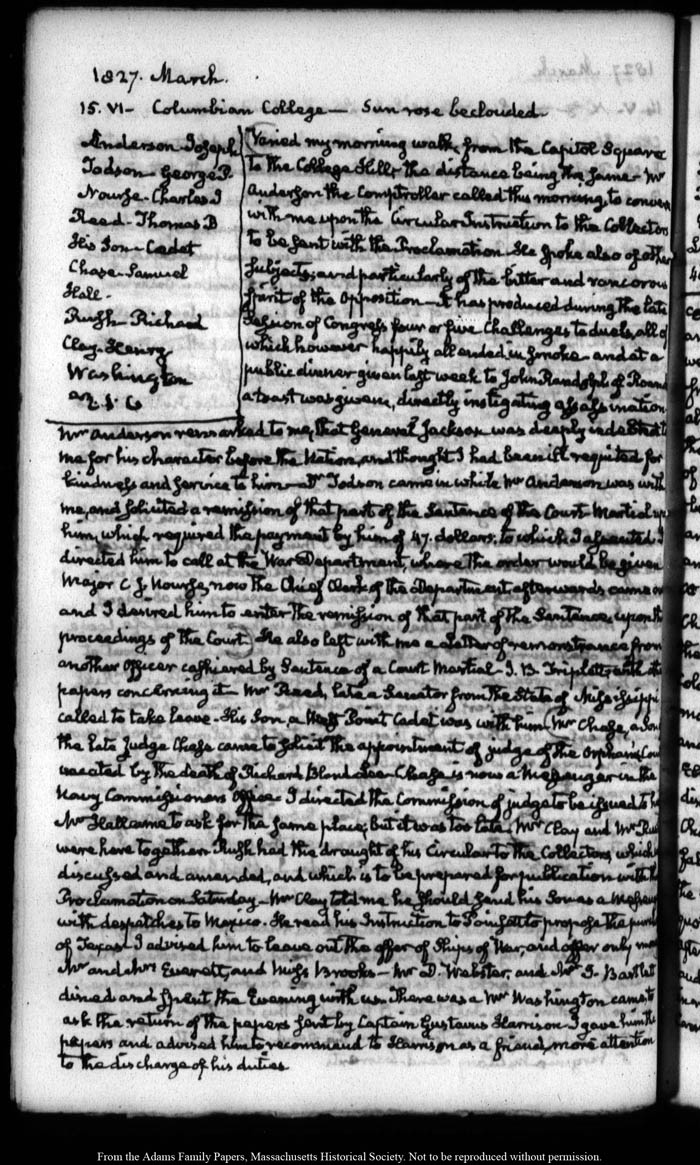 1827. March.
15. VI- Columbian College — Sun rose beclouded.
Anderson Joseph
Todson - George P.
Nourse - Charles J
Reed - Thomas B
His Son - Cadet
Chase - Samuel
Hall -
Rush - Richard
Clay - Henry
Washington
Varied my morning walk, from the Capitol Square
to the College Hill, the distance being the same - Mr
Anderson the Comptroller called this morning, to
with me upon the Circular Instruction to the Collectors
to be sent with the Proclamation. He spoke also of other
subjects; and particularly of the bitter and rancorous
spirit of the Opposition - It has produced during the late
Session of Congress four or five Challenges to duels, all of
which however happily all ended in smoke - and at a
public dinner given last week to John Randolph of
a toast was given, directly instigating assassination.
Mr Anderson remarked to me, that General Jackson was deeply indebted
me for his character before the Nation, and thought I had been ill requited for
kindness and service to him - Dr Todson came in while Mr Anderson was with
me, and solicited a remission of that part of the Sentence of the Court-Martial
him, which required the payment by him of 47. dollars, to which I assented. I
directed him to call at the War Department, where the order would be given
Major C J. Nourse, now the Chief Clerk of the Department afterwards came
and I desired him to enter the remission of that part of the Sentence, upon
proceedings of the Court. He also left with me a Letter of remonstrance from
another Officer cashiered by Sentence of a Court Martial - J. B. Triplett, with
papers concerning it - Mr Reed, late a Senator from the State of Mississippi
called to take leave - His Son, a West Point Cadet was with him. Mr Chase, a Son
the late Judge Chase came to solicit the appointment of judge of the Orphan's
vacated by the death of Richard Bland Lee - Chase is now a Messenger in the
Navy Commissioners Office - I directed the Commission of judge to be issued to
Mr Hall came to ask for the same place; but it was too late. Mr Clay and Mr
were here together. Rush had the draught of his Circular to the Collectors, which
discussed and amended, and which is to be prepared for publication with
Proclamation on Saturday - Mr Clay told me he should send his Son as a
with despatches to Mexico. He read his Instruction to Poinsett to propose the
of Texas - I advised him to leave out the offer of Ships of War, and offer only
Mr and Mrs Everett, and Miss Brooks - Mr D. Webster, and Mr I. Bartlet
dined and spent the Evening with us. There was a Mr Washington came,
ask the return of the papers sent by Captain Gustavus Harrison - I gave him the
papers and advised him to recommend to Harrison as a friend, more attention
to the discharge of his duties
From the Adams Family Papers, Massachusetts Historical Society. Not to be reproduced without permission.